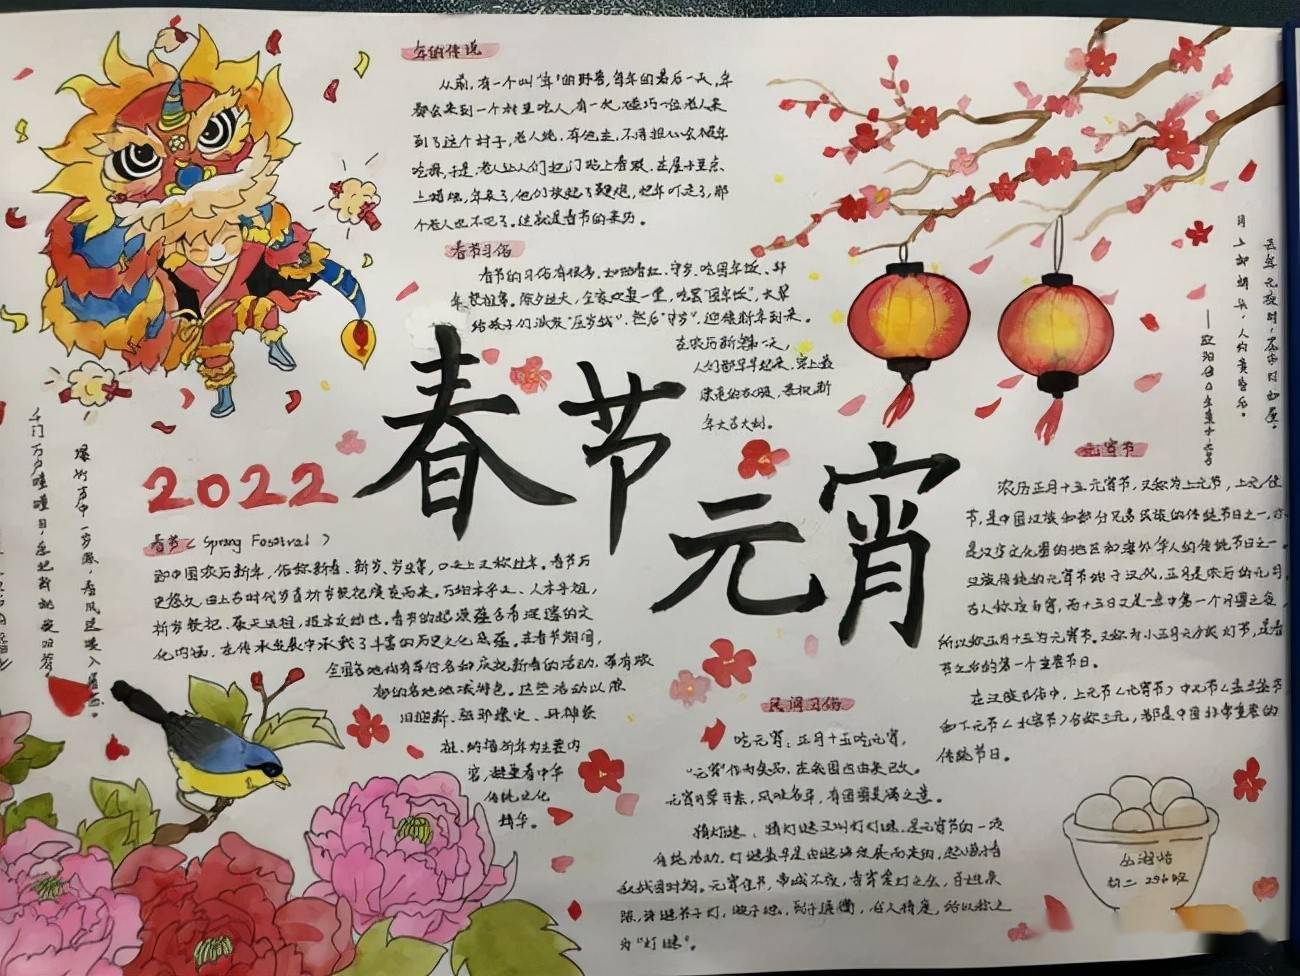 年的传说
从前,有一个叫"年"的野兽,每年的最后一天,年
都会来到一个村里吃人,有一次,碰巧一位老人来
到了这个村子,老人说:有他在,不用担心会被年
吃掉,于是,老人让人们把门贴上春联,在屋里点
上蜡烛,年来了,他们放起了鞭炮,把年吓走了,那
个老人也不见了。这就是春节的来历。
春节习俗
春节的习俗有很多,如贴春红、守岁、吃团年饭、拜
年、祭祖等。除夕这天,全家欢聚一堂,吃罢"团年饭",大人
给孩子们派发"压岁钱",然后"守岁",迎接新年到来。
在农历新年第一天,
人们都早早起来,穿上最
漂亮的衣服,恭祝新
年大吉大利。
春节
元宵
2022
春节(Sprang Fosstval)
即中国农历新年,俗称新春、新岁、岁旦等,口头上又称过年。春节历
史悠久,由上古时代岁首祈岁祭祀演变而来。万物本乎天,人本乎祖,
祈岁祭祀、敬天法祖,报本反始也。春节的起源蕴含着深邃的文
化内涵,在传承发展中承载了丰富的历史文化底蕴。在春节期间,
全国各地均有举行各种庆祝新春的活动,带有浓
郁的各地地域特色。这些活动以除
旧迎新、驱邪攘灾、拜神祭
祖、纳福祈年为主要内
容,凝聚着中华
传统文化
精华。
爆竹声中一岁除,春风送暖入屠苏。
千门万户曈曈日,总把新桃换旧符。
去年元夜时,花市灯如昼。
月上柳梢头,人约黄昏后。
元宵节
农历正月十五元宵节,又称为上元节,上元佳
节,是中国汉族和部分兄弟民族的传统节日之一,亦
是汉字文化圈的地区和海外华人的传统节日之一。
汉族传统的元宵节始于汉代,正月是农历的元月,
古人称夜为宵,而十五日又是一年中第一个月圆之夜,
所以称正月十五为元宵节。又称为小正月元夕或灯节,是春
节之后的第一个重要节日。
在汉族习俗中,上元节(元宵节)中元节(盂兰盆节)
和下元节(水官节)合称三元,都是中国非常重要的
传统节日。
民间习俗
吃元宵:正月十五吃元宵,
"元宵"作为食品,在我国也由来已久。
元宵可荤可素,风味各异,有团圆美满之意。
猜灯谜:猜灯谜又叫打灯谜,是元宵节的一项
传统活动,灯谜最早是由谜语发展而来的,起源于春
秋战国时期。元宵佳节,帝城不夜,春宵赏灯之会,百姓杂
陈,诗谜书于灯,映于烛,列于通衢,任人猜度,所以称之
为"灯谜"。
初二 29班